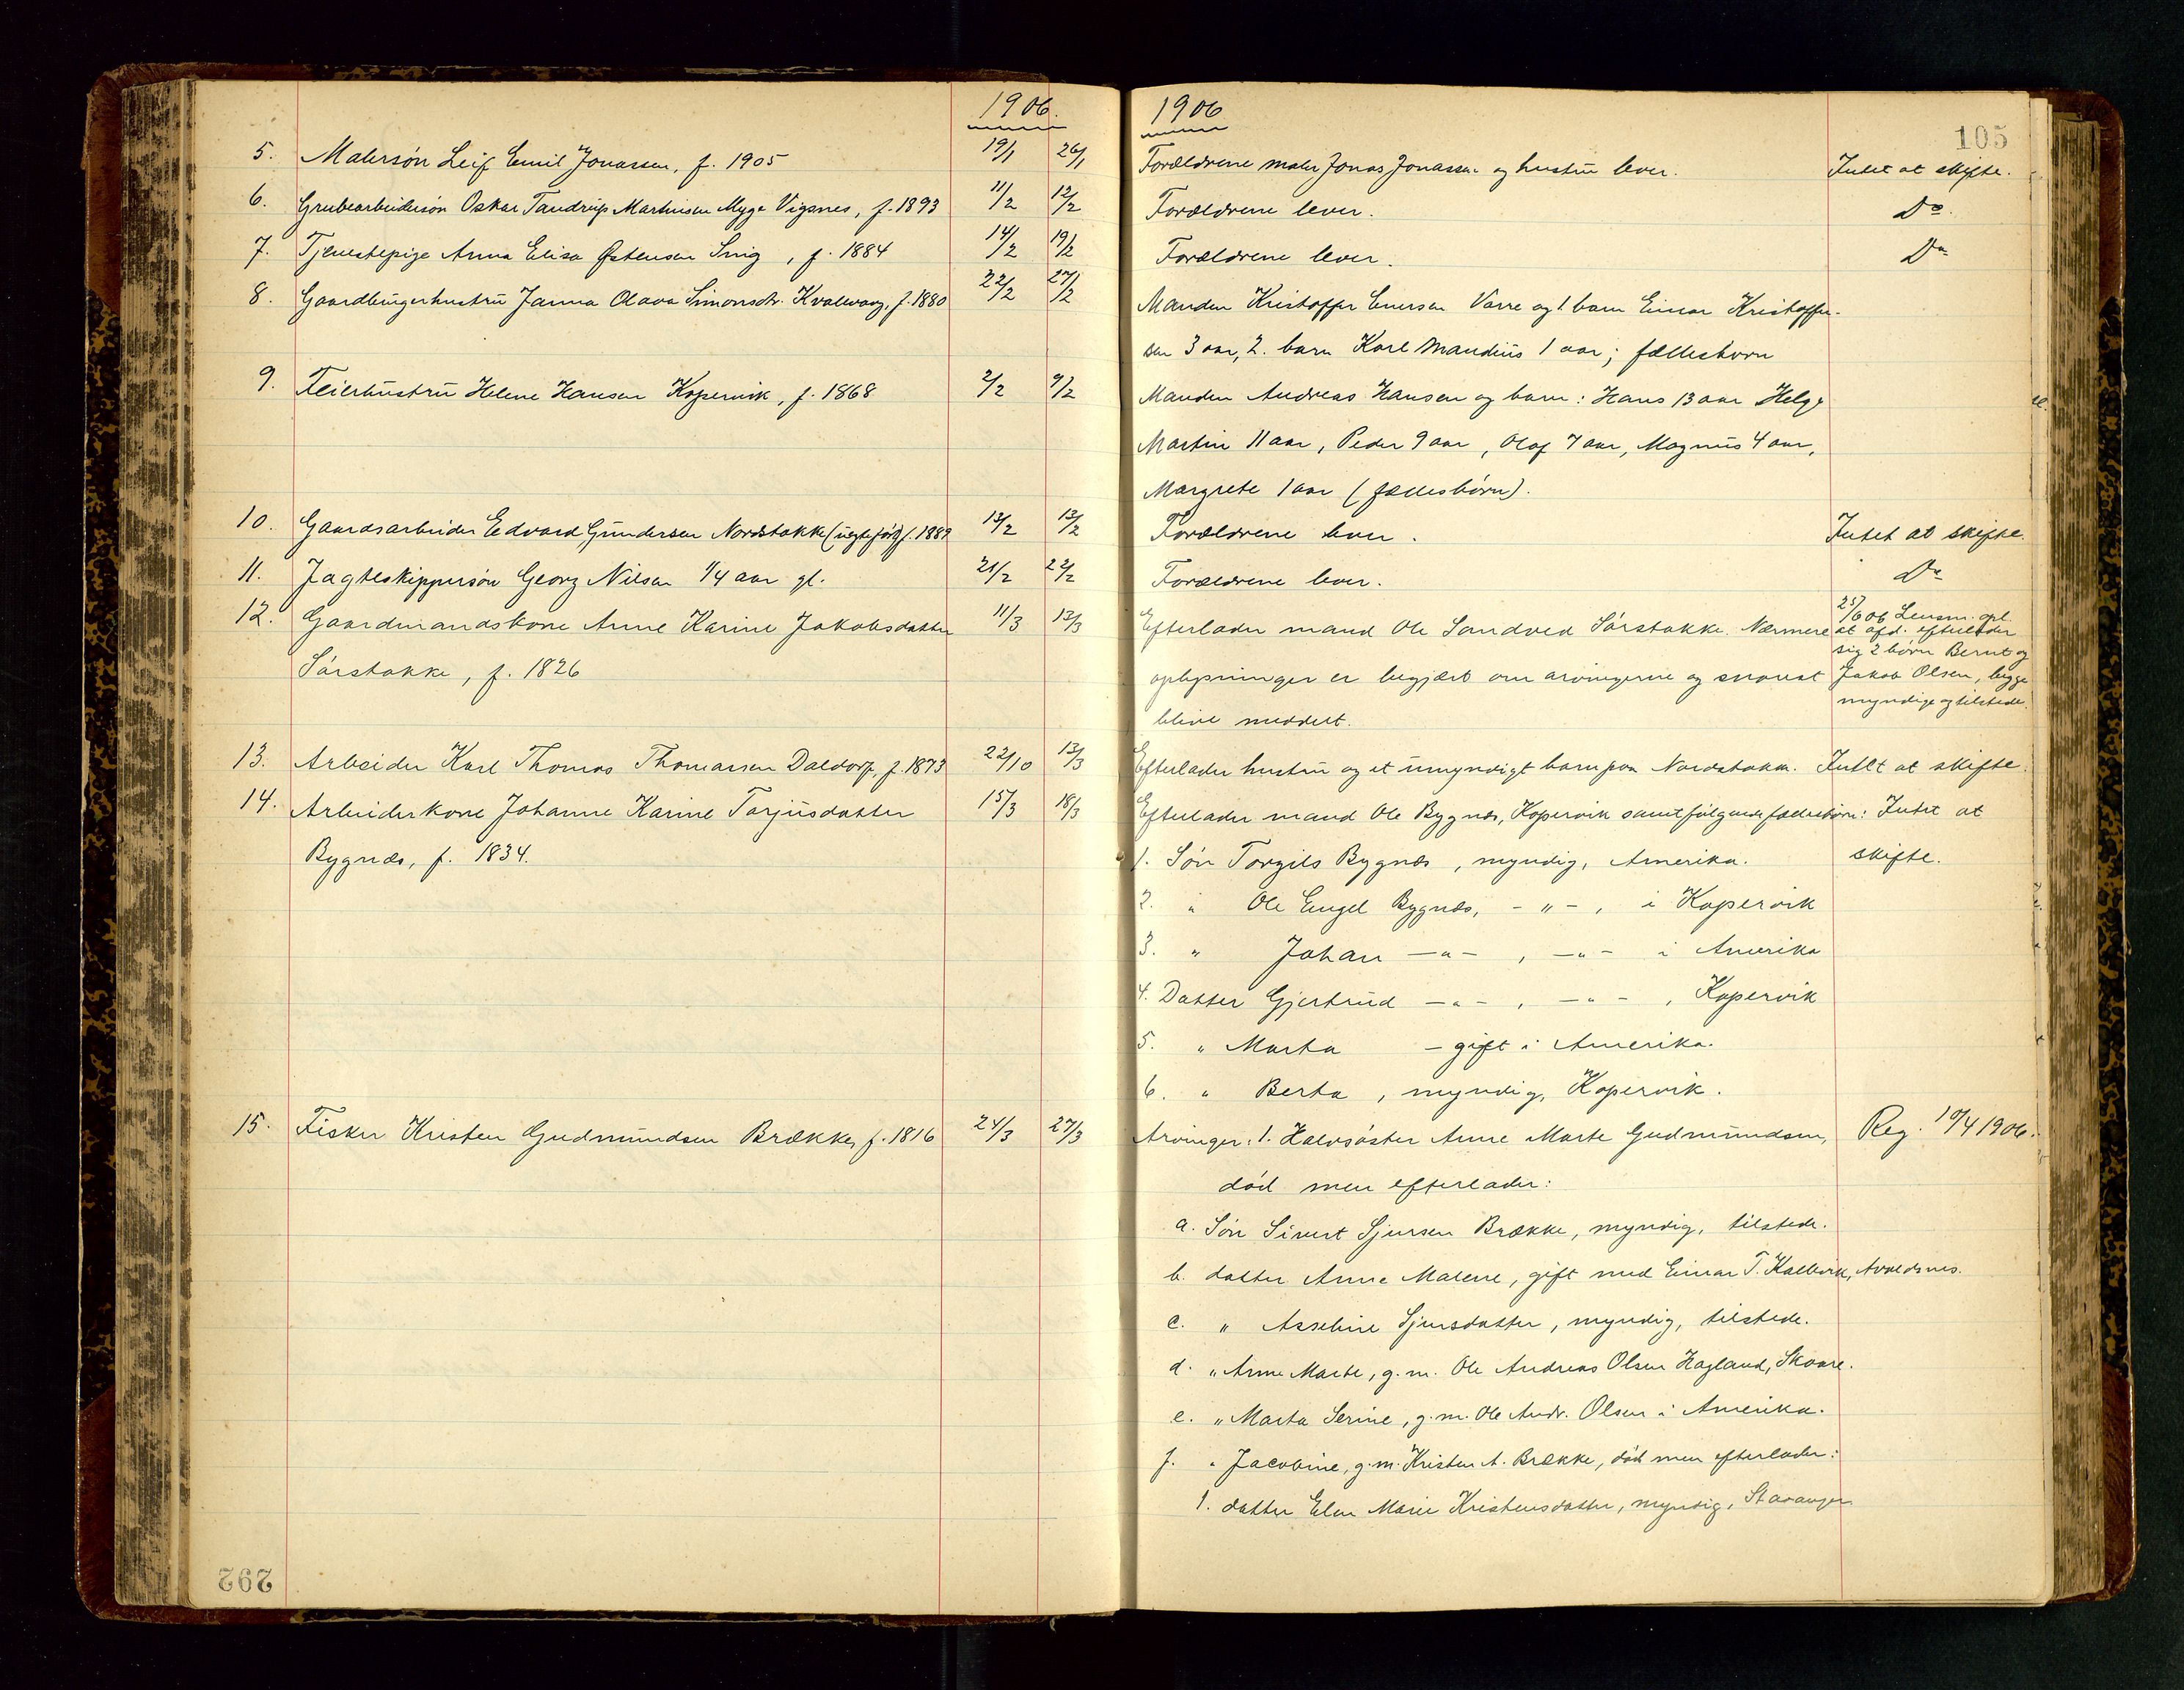 1906.
5. Malersøn Leif Emil Jonassen, f. 1905 19/1 26/1
6. Grubearbeidersøn Oskar Tandrup Martinsen Myge Vigsnes, f. 1893 11/2 12/2
7. Tjenestepige Anna Elisa Østensen Snig, f. 1884 14/2 19/2
8. Gaardbrugerhustru Janna Olava Simonsdtr. Kvalevaag, f. 1880 22/2 27/2
9. Feierhustru Helene Hansen Kopervik, f. 1868 2/2 9/2
10. Gaardsarbeider Edvard Gundersen Nordstokke (uegte født) f. 1889 12/2 13/2
11. Jagteskippersøn Georg Nilsen 1/4 aar gl. 21/2 22/2
12. Gaardmandskone Anne Karine Jakobsdatter 11/3 13/3
Sørstokke, f. 1826
13. Arbeider Karl Thomas Thomassen Daldorf, f. 1873 22/10 13/3
14. Arbeiderkone Johanne Karine Torjusdatter 15/3 18/3
Bygnes, f. 1834.
15. Fisker Kristen Gudmundsen Brække, f. 1816 24/3 27/3
292
1906
105
Forældrene maler Jonas Jonassen og hustru lever. Intet at skifte.
Forældrene lever. Do.
Forældrene lever. Do
Manden Kristoffer Enersen Varre og 1. barn Einar Kristoffer-
sen 3 aar, 2. barn Karl Maudius 1 aar; fællesbørn
Manden Andreas Hansen og barn: Hans 13 aar Helge
Martin 11 aar, Peder 9 aar, Olaf 7 aar, Magnus 4 aar,
Margrete 1 aar (fællesbørn).
Forældrene lever. Intet at skifte.
Forældrene lever. Do
Efterlader mand Ole Sandved Sørstokke. Nærmere
oplysninger er begjært om arvingerne og snarest
blive meddelt.
25/6 06 Lensm. opl.
at afd. efterlader
sig 2 børn Bernt og
Jakob Olsen, begge
myndige og tilstede.
Efterlader hustru og et umyndigt barn paa Nordstokke. Intet at skifte.
Efterlader mand Ole Bygnes, Kopervik samt følgende fællesbørn: Intet at
1. Søn Torgils Bygnes, myndig, Amerika. skifte.
2. " Ole Engel Bygnes, - " - , i Kopervik
3. " Johan - " - , - " - i Amerika
4. Datter Gjertrud - " - , - " - , Kopervik
5. " Marta - gift i Amerika.
6. " Berta, myndig, Kopervik.
Arvinger: 1. Halvsøster Anne Marte Gudmundsen, Reg. 10/4 1906.
død men efterlader:
a. Søn Sivert Sjursen Brække, myndig, tilstede.
b. datter Anne Malene, gift med Einar T. Kallevik, Avaldsnes.
c. " Asseline Sjursdatter, myndig, tilstede.
d. " Anne Marte, g. m. Ole Andreas Olsen Hagland, Skaare.
e. " Marta Serine, g. m. Ole Andr. Olsen i Amerika.
f. " Jacobine, g. m. Kristen A. Brække, død men efterlader:
1. datter Elen Marie Kristensdatter, myndig, Stavanger